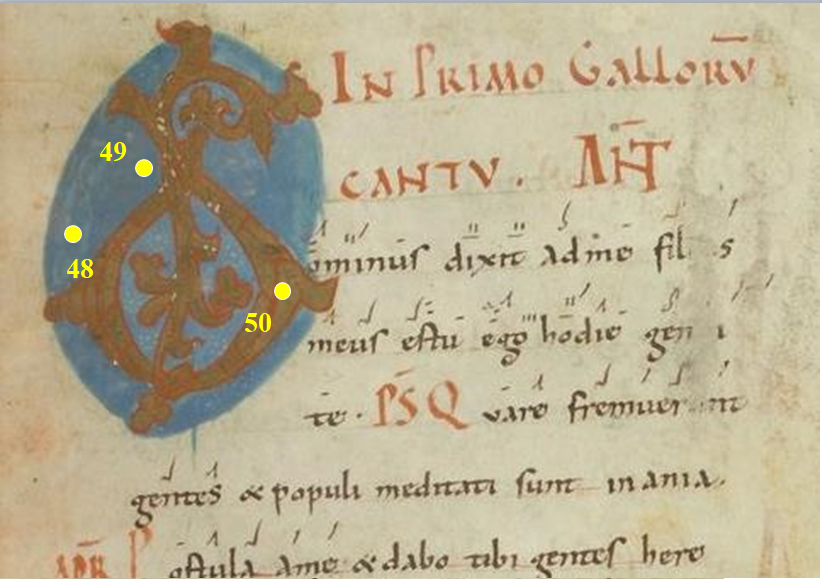 IN PRIMO GALLORŪ
CANTV. ANT
49
Dominus dixit ad me fil s
48
50
meus es tu ego hodie gen i
te. PS Q vare fremuer nt
gentes & populi meditati sunt inania.
APR Postula a me & dabo tibi gentes here